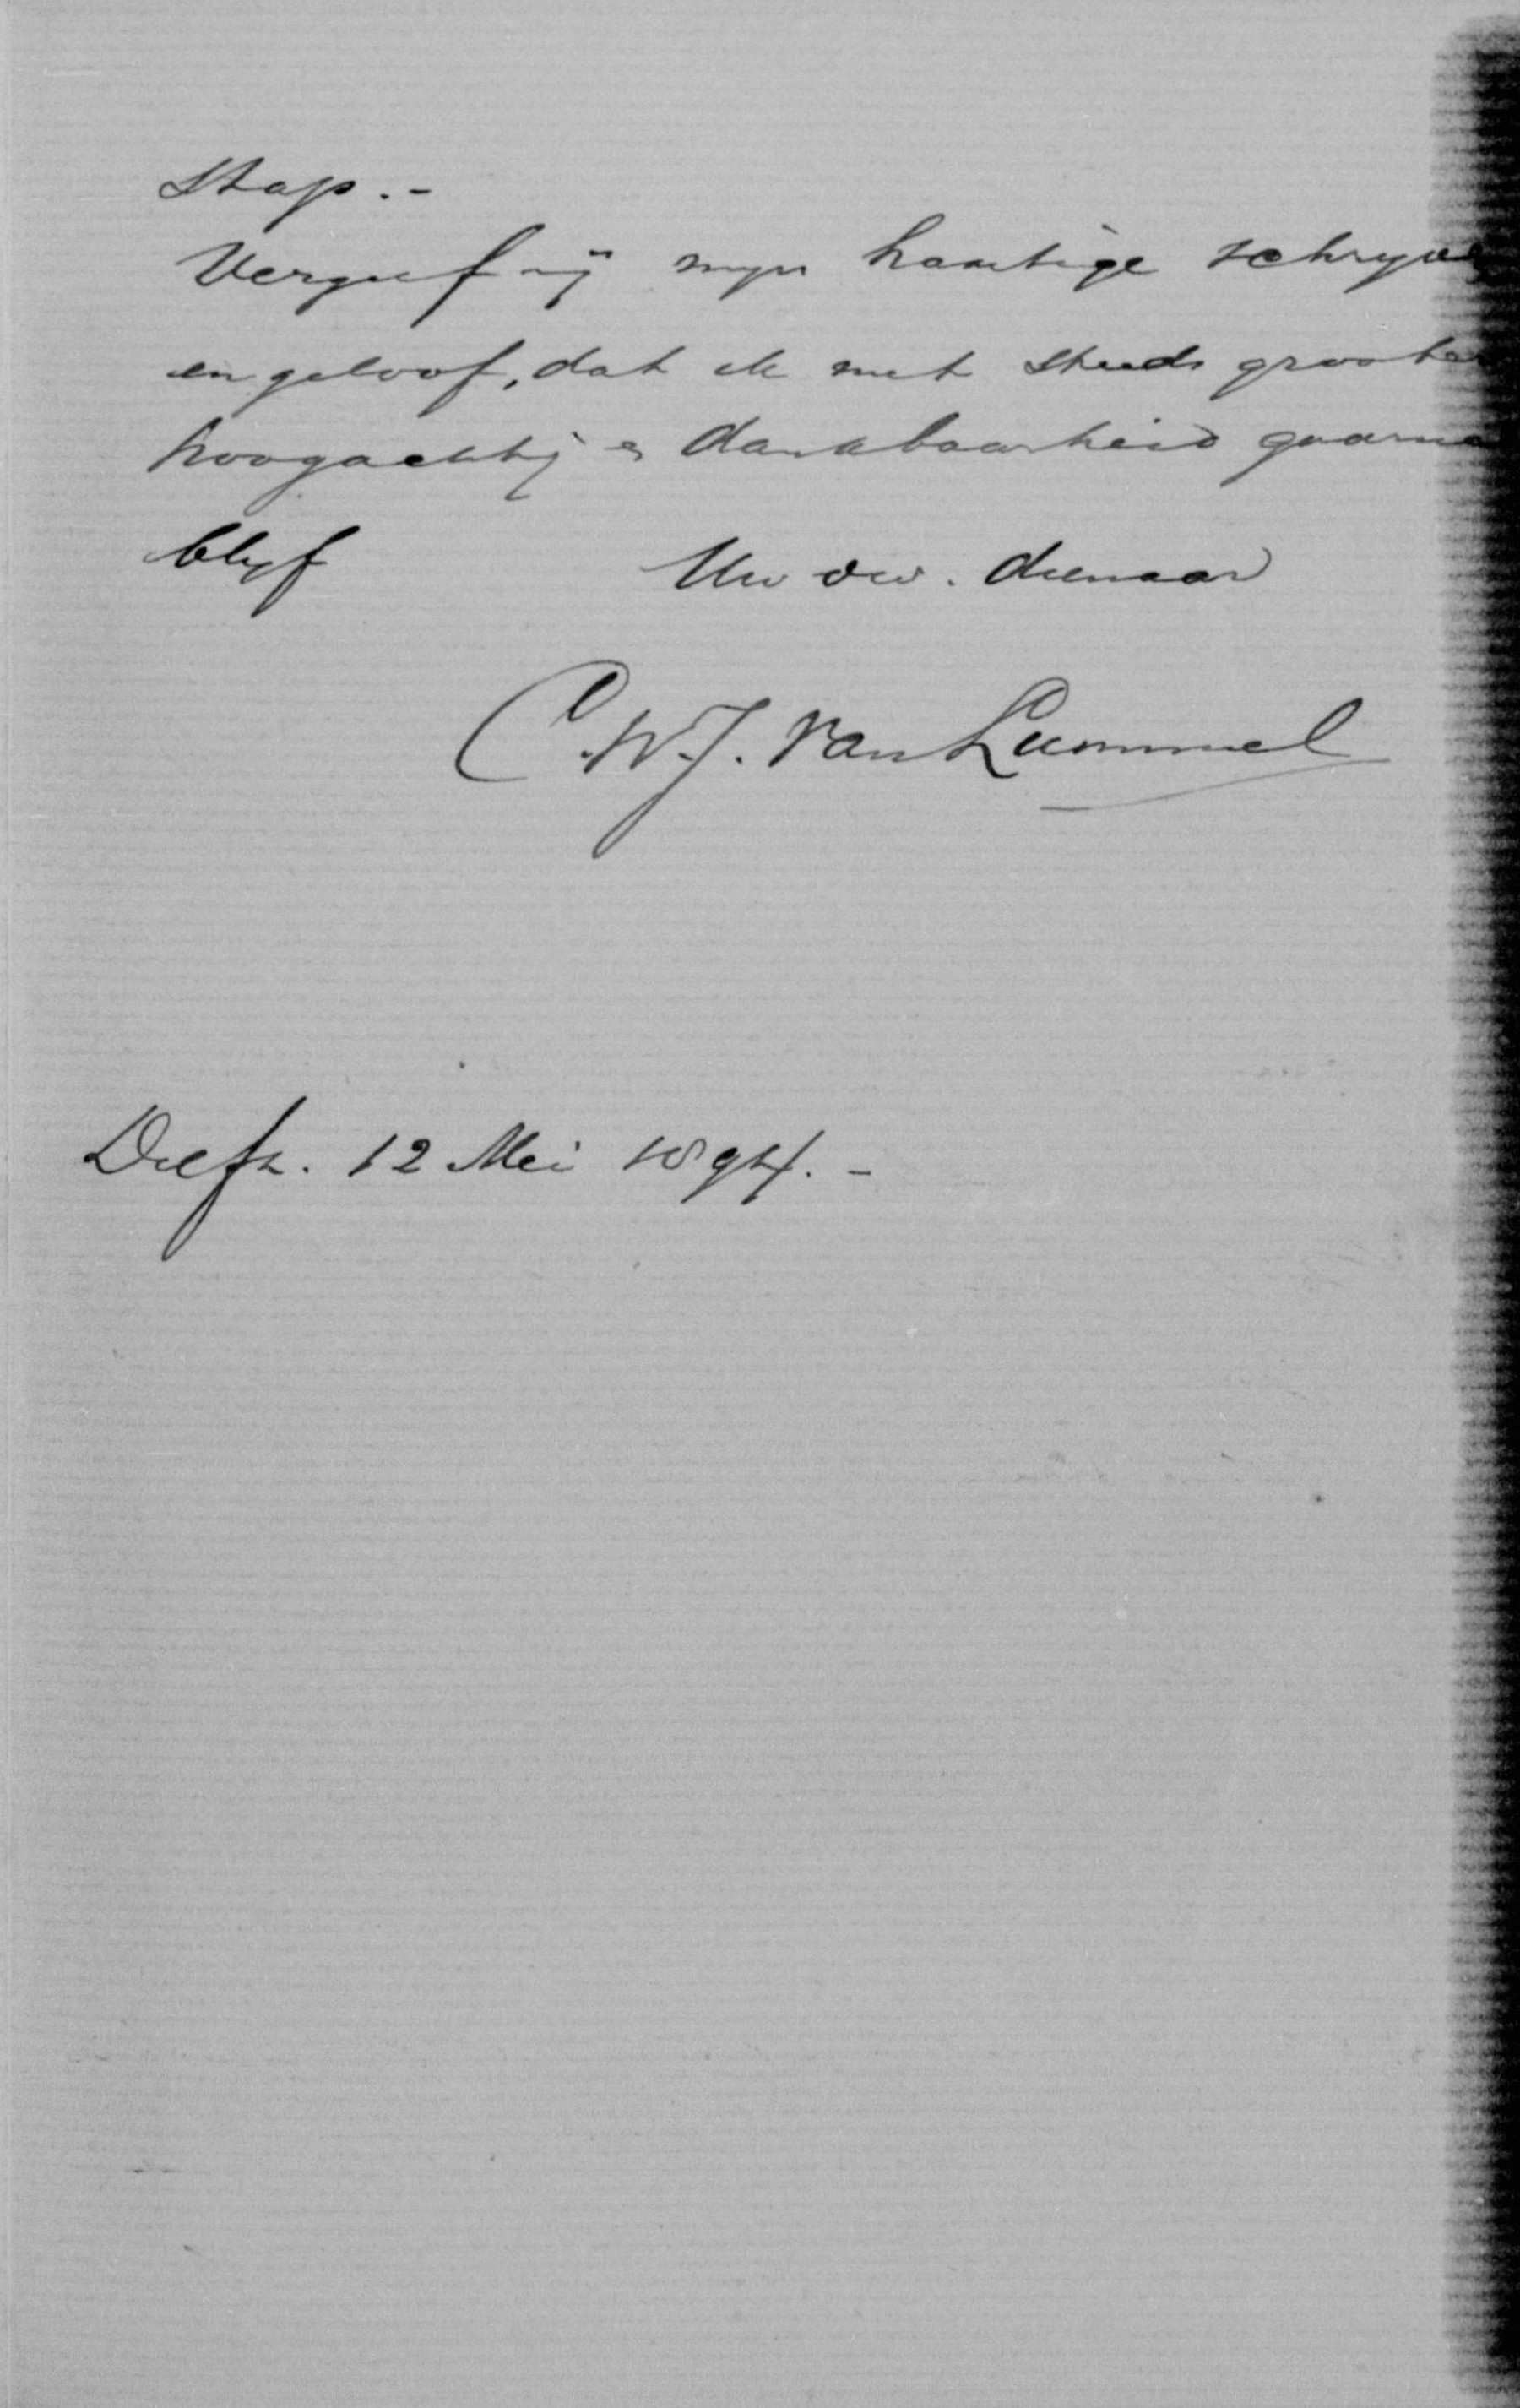 stap. -
Vergeef mij mijn haastige schrijven
en geloof, dat ik met steeds grooter
hoogachtg en dankbaarheid gaarne
blijf Uw dw. dienaar
C.W.J. van Lummel
Delft. 12 Mei 1894. -